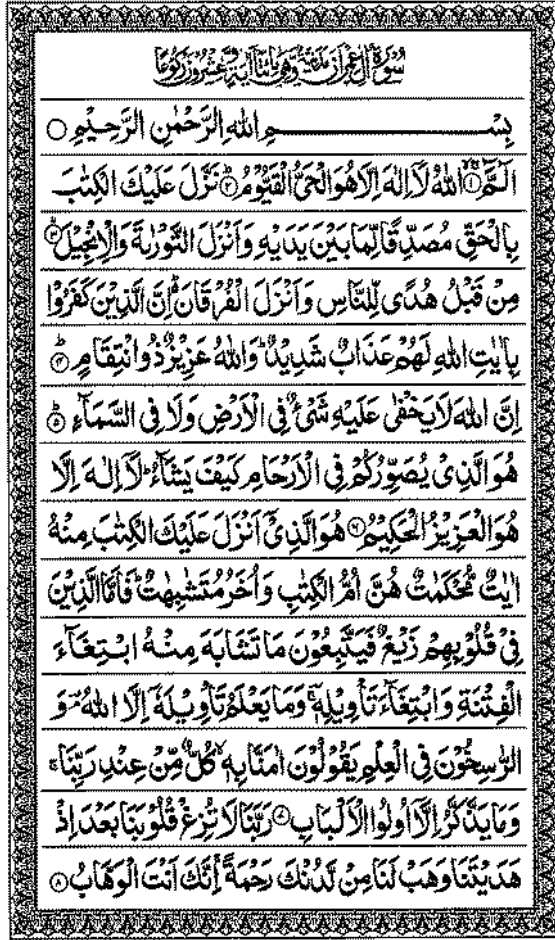 سُوْرَةُ اٰلِ عِمْرٰنَ مَدَنِيَّةٌ وَّهِيَ مِائَتَا اٰيَةٍ وَّعِشْرُوْنَ رُكُوْعًا
بِسْمِ اللهِ الرَّحْمٰنِ الرَّحِيْمِ ○
الٓمَّٓ ۙ﴿۱﴾ اللهُ لَاۤ اِلٰهَ اِلَّا هُوَ الْحَيُّ الْقَيُّوْمُ ؕ﴿۲﴾ نَزَّلَ عَلَيْكَ الْكِتٰبَ
بِالْحَقِّ مُصَدِّقًا لِّمَا بَيْنَ يَدَيْهِ وَاَنْزَلَ التَّوْرٰىةَ وَالْاِنْجِيْلَ ۙ﴿۳﴾
مِنْ قَبْلُ هُدًى لِّلنَّاسِ وَاَنْزَلَ الْفُرْقَانَ ؕ اِنَّ الَّذِيْنَ كَفَرُوْا
بِاٰيٰتِ اللهِ لَهُمْ عَذَابٌ شَدِيْدٌ ؕ وَاللهُ عَزِيْزٌ ذُو انْتِقَامٍ ؕ﴿۴﴾
اِنَّ اللهَ لَا يَخْفٰى عَلَيْهِ شَيْءٌ فِي الْاَرْضِ وَلَا فِي السَّمَآءِ ؕ﴿۵﴾
هُوَ الَّذِيْ يُصَوِّرُكُمْ فِي الْاَرْحَامِ كَيْفَ يَشَآءُ ؕ لَاۤ اِلٰهَ اِلَّا
هُوَ الْعَزِيْزُ الْحَكِيْمُ ﴿۶﴾ هُوَ الَّذِيْۤ اَنْزَلَ عَلَيْكَ الْكِتٰبَ مِنْهُ
اٰيٰتٌ مُّحْكَمٰتٌ هُنَّ اُمُّ الْكِتٰبِ وَاُخَرُ مُتَشٰبِهٰتٌ ؕ فَاَمَّا الَّذِيْنَ
فِيْ قُلُوْبِهِمْ زَيْغٌ فَيَتَّبِعُوْنَ مَا تَشَابَهَ مِنْهُ ابْتِغَآءَ
الْفِتْنَةِ وَابْتِغَآءَ تَاْوِيْلِهٖ ۚ وَمَا يَعْلَمُ تَاْوِيْلَهٗۤ اِلَّا اللهُ ۘ وَ
الرّٰسِخُوْنَ فِي الْعِلْمِ يَقُوْلُوْنَ اٰمَنَّا بِهٖ ۙ كُلٌّ مِّنْ عِنْدِ رَبِّنَا ۚ
وَمَا يَذَّكَّرُ اِلَّاۤ اُولُوا الْاَلْبَابِ ﴿۷﴾ رَبَّنَا لَا تُزِغْ قُلُوْبَنَا بَعْدَ اِذْ
هَدَيْتَنَا وَهَبْ لَنَا مِنْ لَّدُنْكَ رَحْمَةً ۚ اِنَّكَ اَنْتَ الْوَهَّابُ ﴿۸﴾